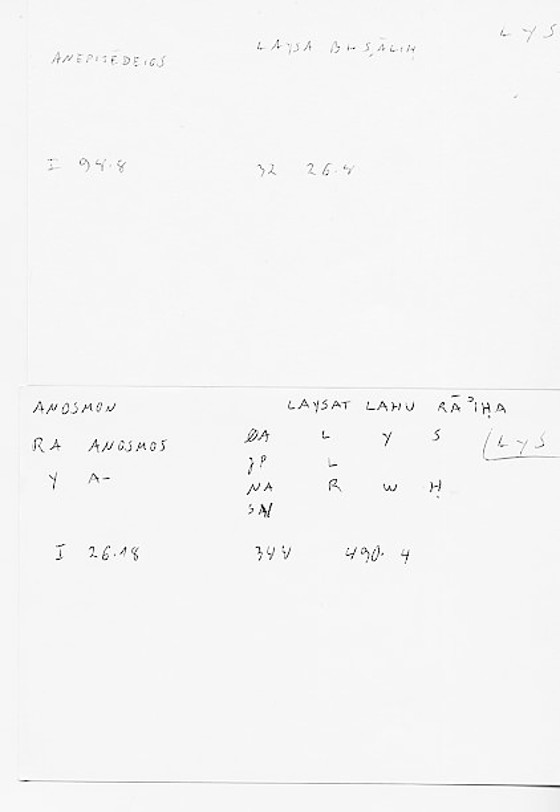 ANEPITĒDEIOS LAYSA BI-ṢĀLIḤ LYS
I 98.8 32 26.8
ANOSMON LAYSAT LAHU RĀʾIḤA
RA ANOSMOS ØA L Y S (LYS
Y A- JP L
NA R W Ḥ
I 26.18 34V 490. 4